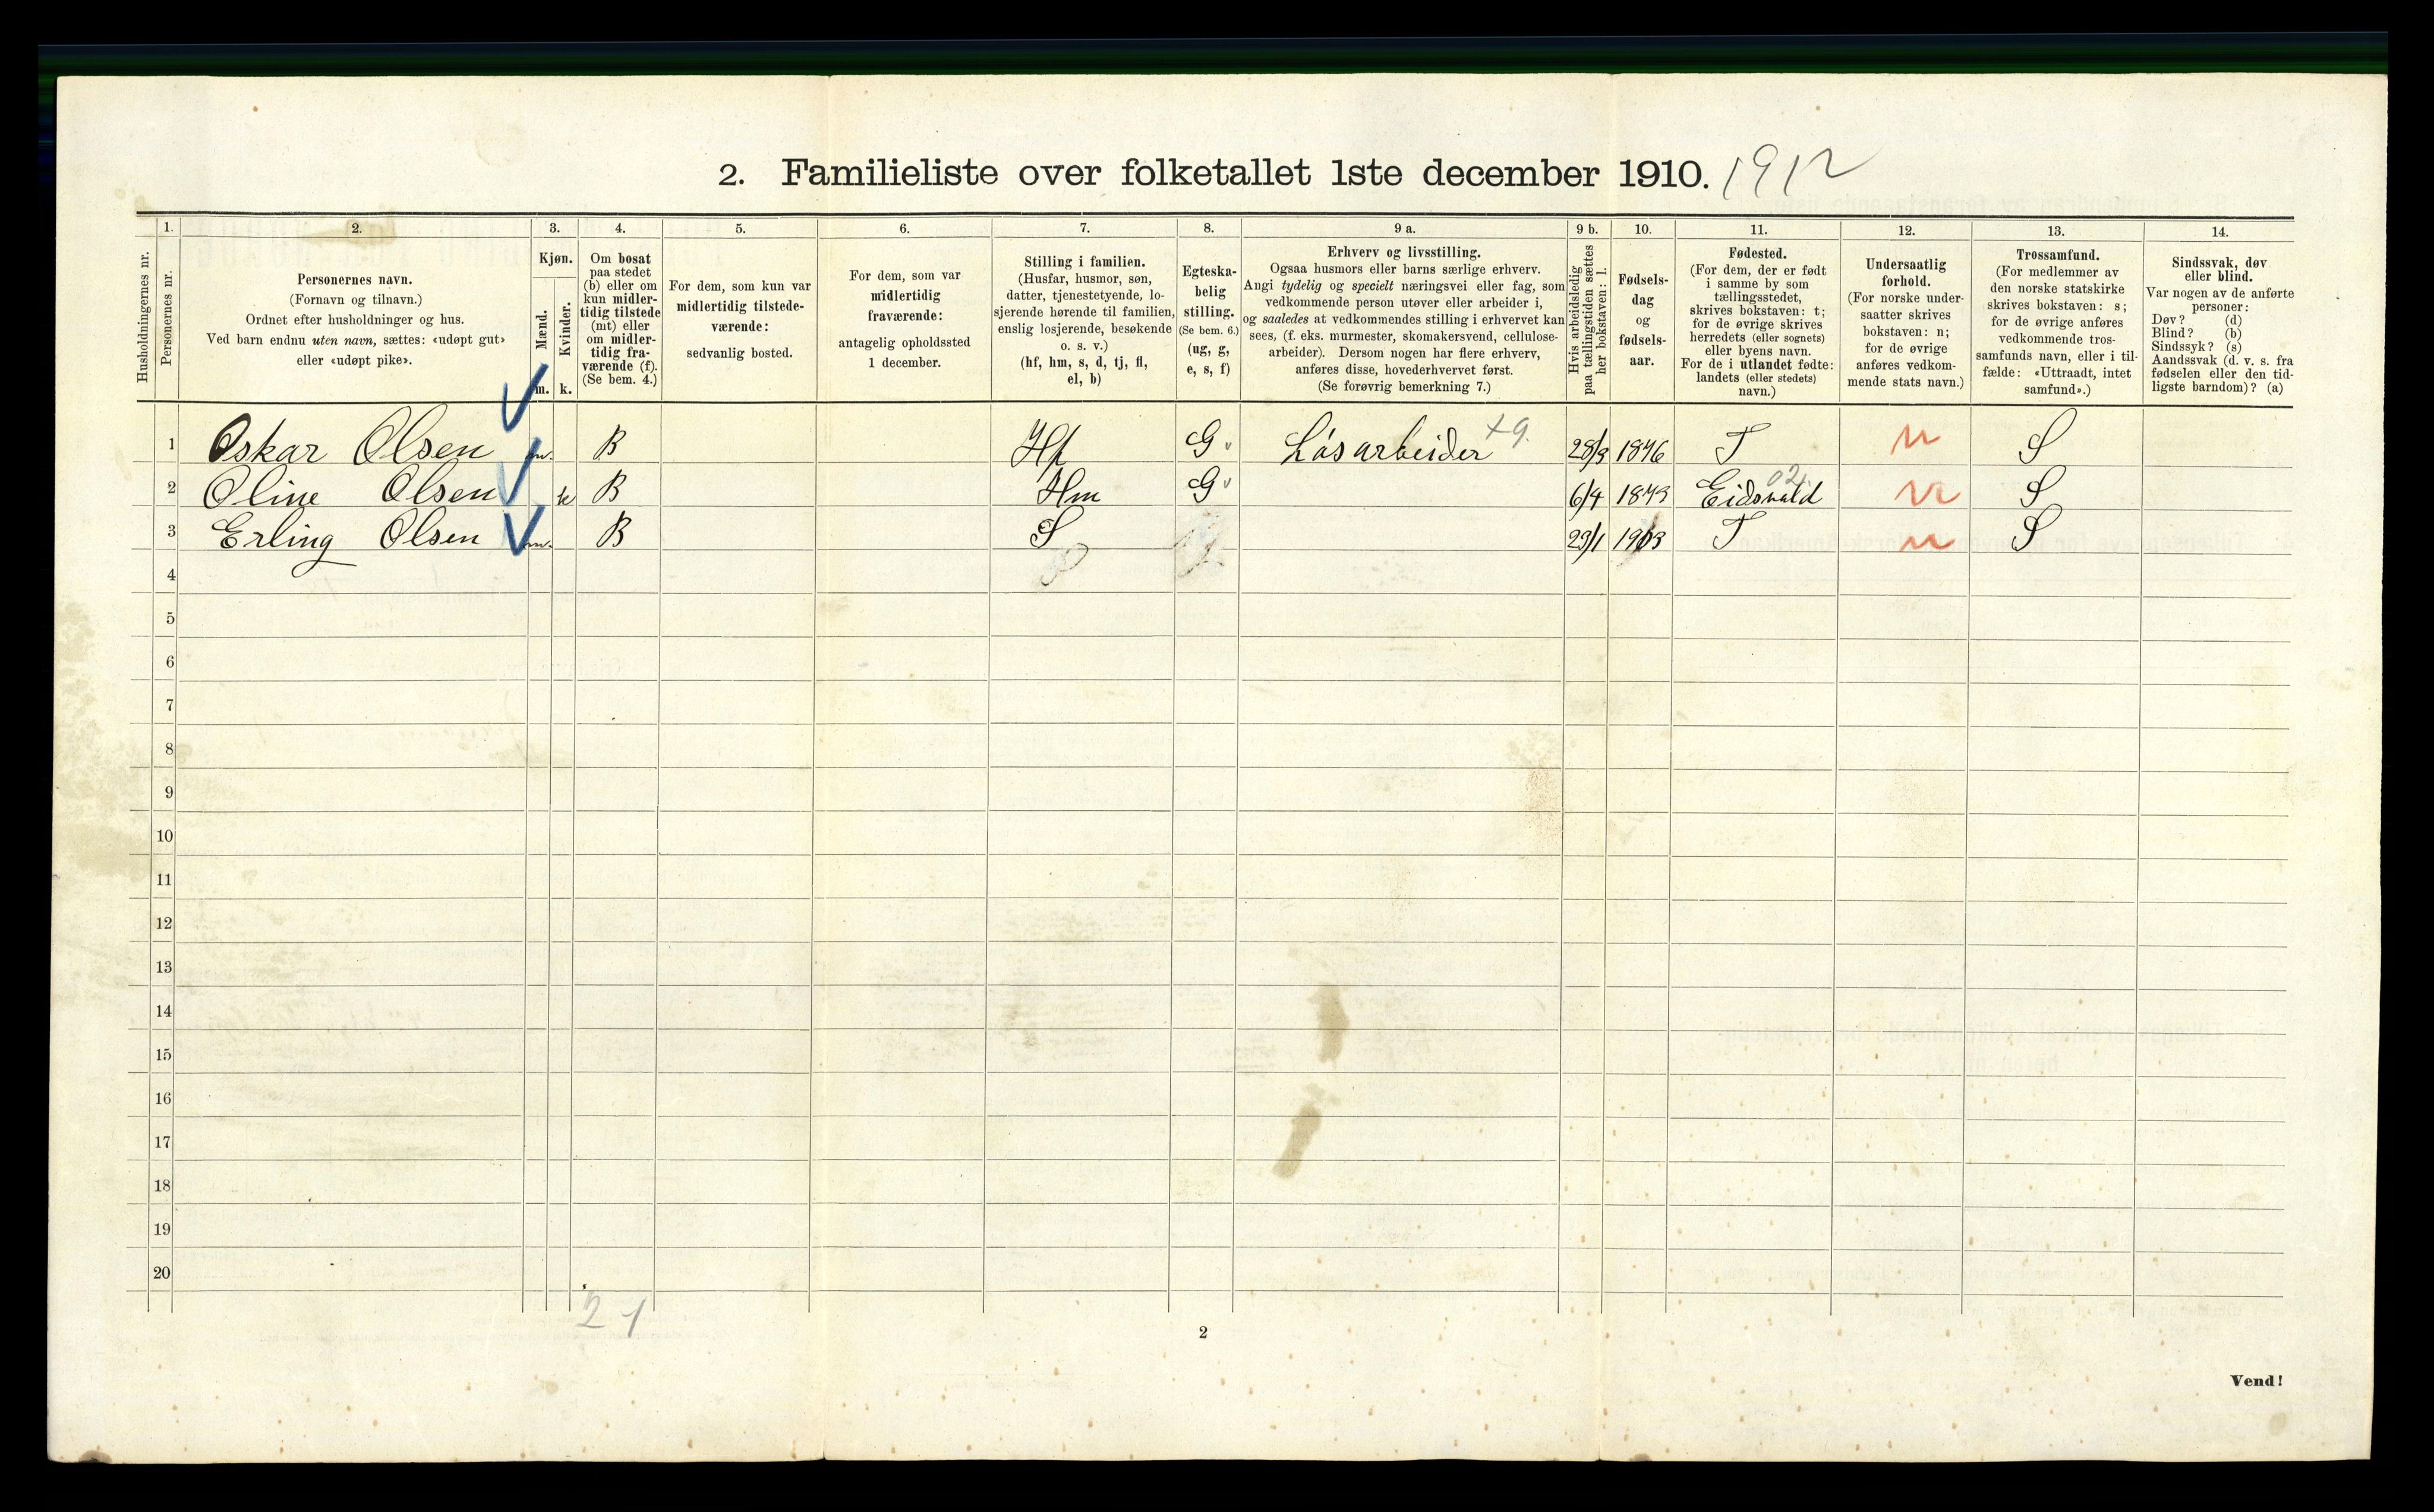 2. Familieliste over folketallet 1ste december 1910. 1912
1. 2. 3. 4. 5. 6. 7. 8. 9 a. 9 b. 10. 11. 12. 13. 14.
Husholdningernes nr.
Personernes nr.
Personernes navn.
(Fornavn og tilnavn.)
Ordnet efter husholdninger og hus.
Ved barn endnu uten navn, sættes: «udøpt gut»
eller «udøpt pike».
Kjøn.
Mænd.
Kvinder.
m. k.
Om bosat
paa stedet
(b) eller om
kun midler-
tidig tilstede
(mt) eller
om midler-
tidig fra-
værende (f).
(Se bem. 4.)
For dem, som kun var
midlertidig tilstede-
værende:
sedvanlig bosted.
For dem, som var
midlertidig
fraværende:
antagelig opholdssted
1 december.
Stilling i familien.
(Husfar, husmor, søn,
datter, tjenestetyende, lo-
sjerende hørende til familien,
enslig losjerende, besøkende
o. s. v.)
(hf, hm, s, d, tj, fl,
el, b)
Egteska-
belig
stilling.
(Se bem. 6.)
(ug, g,
e, s, f)
Erhverv og livsstilling.
Ogsaa husmors eller barns særlige erhverv.
Angi tydelig og specielt næringsvei eller fag, som
vedkommende person utøver eller arbeider i,
og saaledes at vedkommendes stilling i erhvervet kan
sees, (f. eks. murmester, skomakersvend, cellulose-
arbeider). Dersom nogen har flere erhverv,
anføres disse, hovederhvervet først.
(Se forøvrig bemerkning 7.)
Hvis arbeidsledig
paa tællingstiden sættes
her bokstaven: l.
Fødsels-
dag
og
fødsels-
aar.
Fødested.
(For dem, der er født
i samme by som
tællingsstedet,
skrives bokstaven: t;
for de øvrige skrives
herredets (eller sognets)
eller byens navn.
For de i utlandet fødte:
landets (eller stedets)
navn.)
Undersaatlig
forhold.
(For norske under-
saatter skrives
bokstaven: n;
for de øvrige
anføres vedkom-
mende stats navn.)
Trossamfund.
(For medlemmer av
den norske statskirke
skrives bokstaven: s;
for de øvrige anføres
vedkommende tros-
samfunds navn, eller i til-
fælde: «Uttraadt, intet
samfund».)
Sindssvak, døv
eller blind.
Var nogen av de anførte
personer:
Døv? (d)
Blind? (b)
Sindssyk? (s)
Aandssvak (d. v. s. fra
fødselen eller den tid-
ligste barndom)? (a)
1 Oskar Olsen m. B Hf G Løsarbeider 28/3 1876 T n S
2 Oline Olsen k B Hm G 6/4 1873 Eidsvald 02. n S
3 Erling Olsen m. B S 29/1 1903 T n S
4
5
6
7
8
9
10
11
12
13
14
15
16
17
18
19
20
2 1
2
Vend!